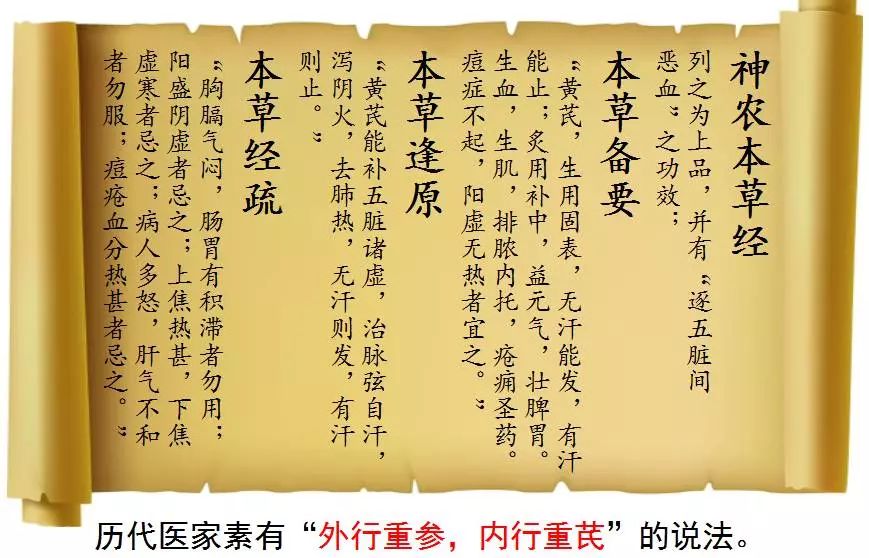 神农本草经
列之为上品，并有“逐五脏间
恶血”之功效；
本草备要
“黄芪，生用固表，无汗能发，有汗
能止；炙用补中，益元气，壮脾胃。
生血，生肌，排脓内托，疮痈圣药。
痘症不起，阳虚无热者宜之。”
本草逢原
“黄芪能补五脏诸虚，治脉弦自汗，
泻阴火，去肺热，无汗则发，有汗
则止。”
本草经疏
“胸膈气闷，肠胃有积滞者勿用；
阳盛阴虚者忌之；上焦热甚，下焦
虚寒者忌之；病人多怒，肝气不和
者勿服；痘疮血分热甚者忌之。”
历代医家素有“外行重参，内行重芪”的说法。